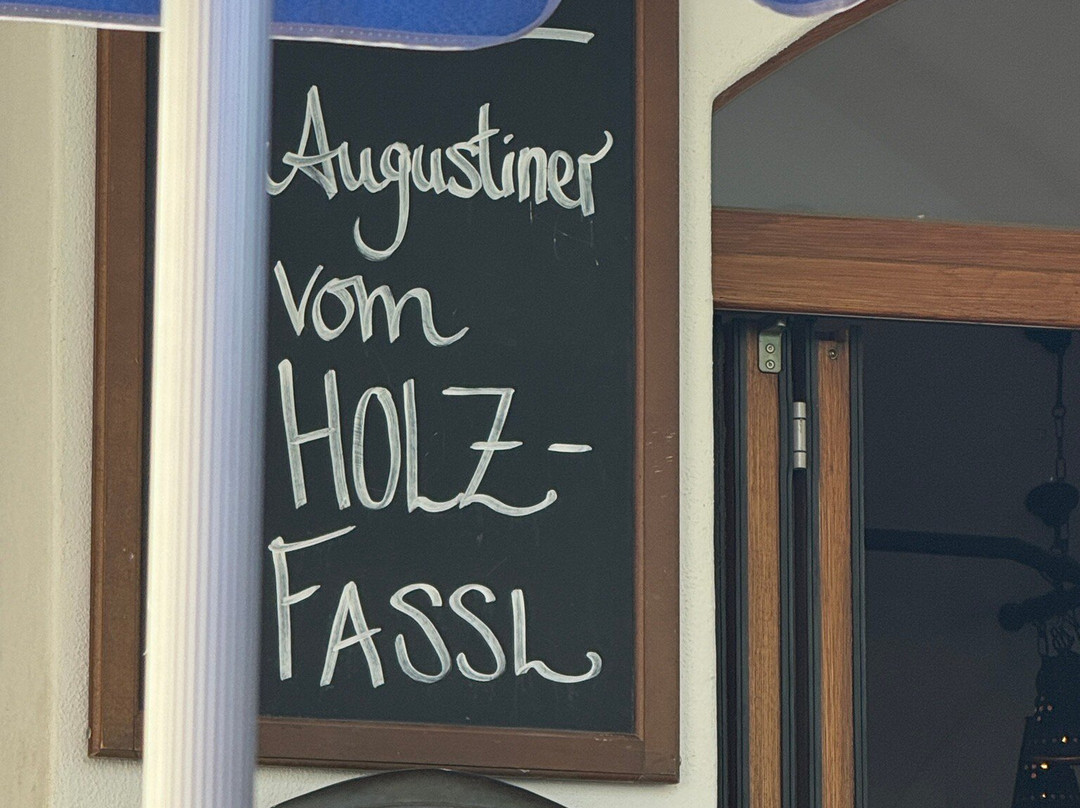 Augustiner
vom
HOLZ-
FASSL